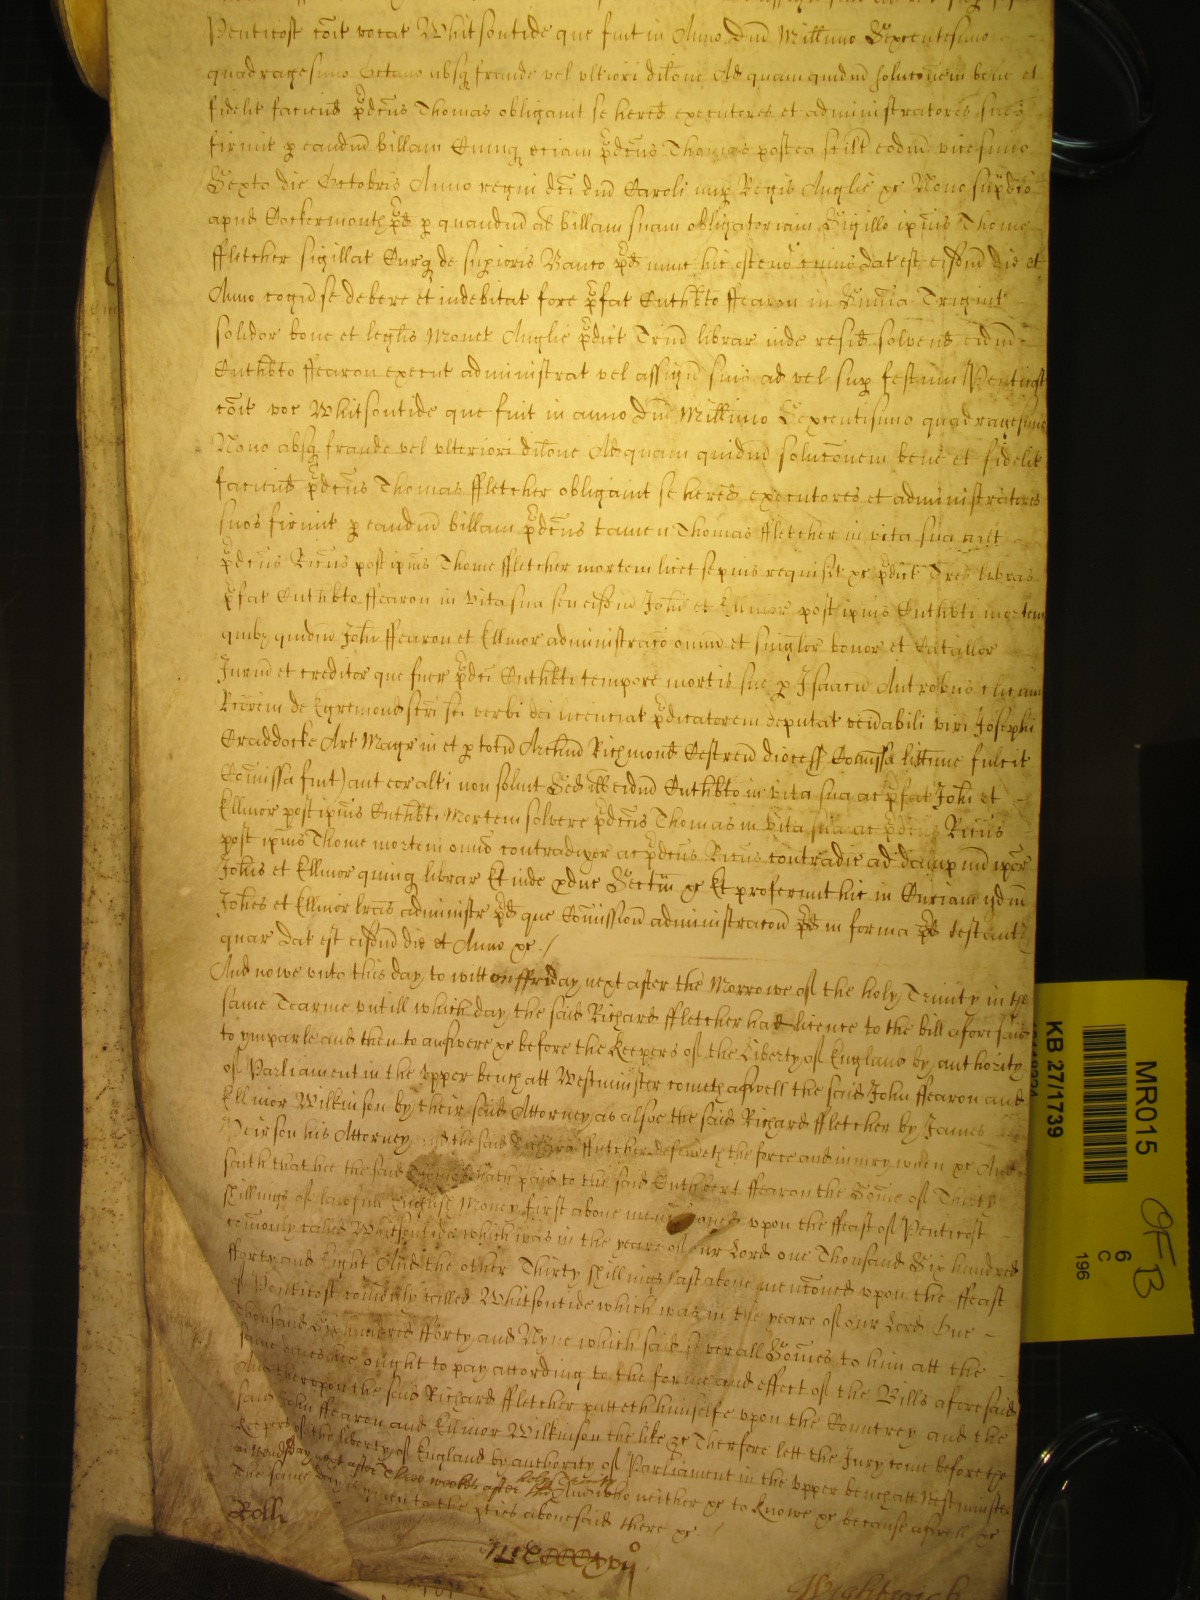 Penticost cõit vocat Whitsontide que fuit in Anno Dñi Millimo Sexcentesimo
quadragesimo Octavo absq fraude vel ulteriori dilone Ad quam quidm soluconem bene et
fidelit faciend pdcus Thomas obligavit se hered executores et administratores suos
firmit p eandm billam Cumq eciam pdcus Thomas postea scilt eodm vicesimo
Sexto die Octobris Anno regni dci dni Caroli nup Regis Anglie xc Nono supdco
apud Cockermouth pd p quandm al billam suam obligatoriam Sigillo ipius Thome
ffletcher sigillat Curq de supioris Banco pd nunc hic ostens cuius dat est eisdm die et
Anno cogn se debere et indebitat fore pfat Cuthbto ffearon in Suma Trigint
solidor bone et leglis Monet Anglie pdict Triu librar inde resid solvend eidm
Cuthbto ffearon execut administrat vel assign suis ad vel sup festum Penticost
cõit voc Whitsontide que fuit in anno Dni Millimo Sexcentisimo quadragesimo
Nono absq fraude vel ulteriori dilone Ad quam quidm soluconem bene et fidelit
faciend pdcus Thomas ffletcher obligavit se hered executores et administratores
suos firmit p eandm billam pdcus tamen Thomas ffletcher in vita sua aut
pdcus Ricus post ipius Thome ffletcher mortem licet sepius requisit xc pdict Tres libras
pfat Cuthbto ffearon in vita sua seu eisdm Johi et Ellinor post ipius Cuthbti mortem
quibz quidm Johi ffearon et Ellinor administraco omiu et singlor bonor et Catallor
Jurium et creditor que fuer pdci Cuthbti tempore mortis sue p Isaacu Antrobus clicum
Rcorem de Egremond scri sci verbi dei licenciat pdicatorem deputat venabili viri Josephi
Craddocke Art Magr in et p totu Archm Richmond Cestren dioces Comissa littime fulcit
Comissa fuit) aut eor alti non solut Sed ill eidm Cuthbto in vita sua ac pfat Johi et
Ellinor post ipius Cuthbti Mortem solvere pdcus Thomas in vita sua ac pdcus Ricus
post ipius Thome mortem omio contradixer ac pdcus Ricus contradic ad dampnu ipor
Johis et Ellinor quinq librar Et inde pduc Sectm xc Et proferunt hic in Curiam ijdm
Johes et Ellinor lras administr pd que Comission administracon pd in forma pd testant
quar dat est eisdm die et Anno xc
And nowe vnto this day to witt on ffriday next after the Morrowe of the holy Trinity in the
same Tearme untill which day the said Richard ffletcher had licence to the bill aforesaid
to ymparle and then to answere xc before the keepers of the Liberty of England by authority
of Parliament in the vpper bench att Westminster cometh aswell the said John ffearon and
Ellinor Wilkinson by their said Attorney as alsoe the said Richard ffletcher by James
Peirson his Attorney and the said Richard ffletcher defendeth the force and iniury when xc And
saith that hee the said Thomas hath paid to the said Cuthbert ffearon the Some of Thirty
shillings of lawfull English Money first aboue menconed vpon the ffeast of Penticost
comonly called Whitsontide which was in the yeare of our Lord one Thousand Six hundred
fforty and Eight And the other Thirty shillings last aboue menconed vpon the ffeast
of Penticost comonly called Whitsontide which was in the yeare of our Lord One
Thousand Six hundred fforty and Nyne which said seuerall Somes to him att the
same times hee ought to pay according to the forme and effect of the Bills aforesaid
And therevpon the said Richard ffletcher putteth himselfe vpon the Countrey and the
said John ffearon and Ellinor Wilkinson the like xc Therefore lett the Jury come before the
keepers of the liberty of England by authority of Parliament in the vpper bench att Westminster
on next after Three weekes after holy Trinity who neither xc to knowe xc because aswell xc
The same day is giuen to the pties abouesaid there xc
Roll
Wightwick
MR015
KB 27/1739
OFB
6
C
196